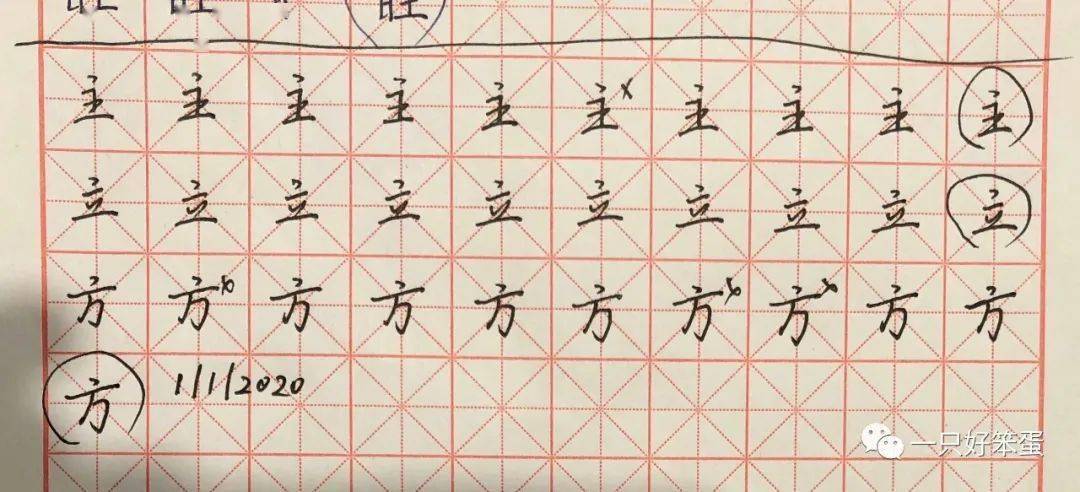 主 主 主 主 主 主 主 主 主 主
立 立 立 立 立 立 立 立 立 立
方 方 方 方 方 方 方 方 方 方
方 1/1/2020
一只好笨蛋